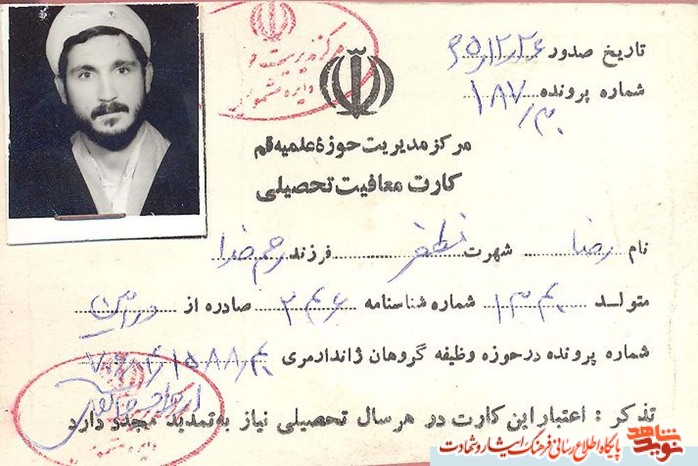 تاریخ صدور ۶۵/۱۲/۲۶
شماره پرونده ۱۸۷/م
مرکز مدیریت حوزهٔ علمیه قم
کارت معافیت تحصیلی
نام رضا شهرت فرزند رحم خدا
متولد شماره شناسنامه صادره از ورامین
شماره پرونده در حوزه وظیفه گروهان ژاندارمری
تذکر : اعتبار این کارت در هر سال تحصیلی نیاز به تمدید مجدد دارد
مرکز مدیریت
نوید شاهد
پایگاه اطلاع رسانی فرهنگ ایثار و شهادت